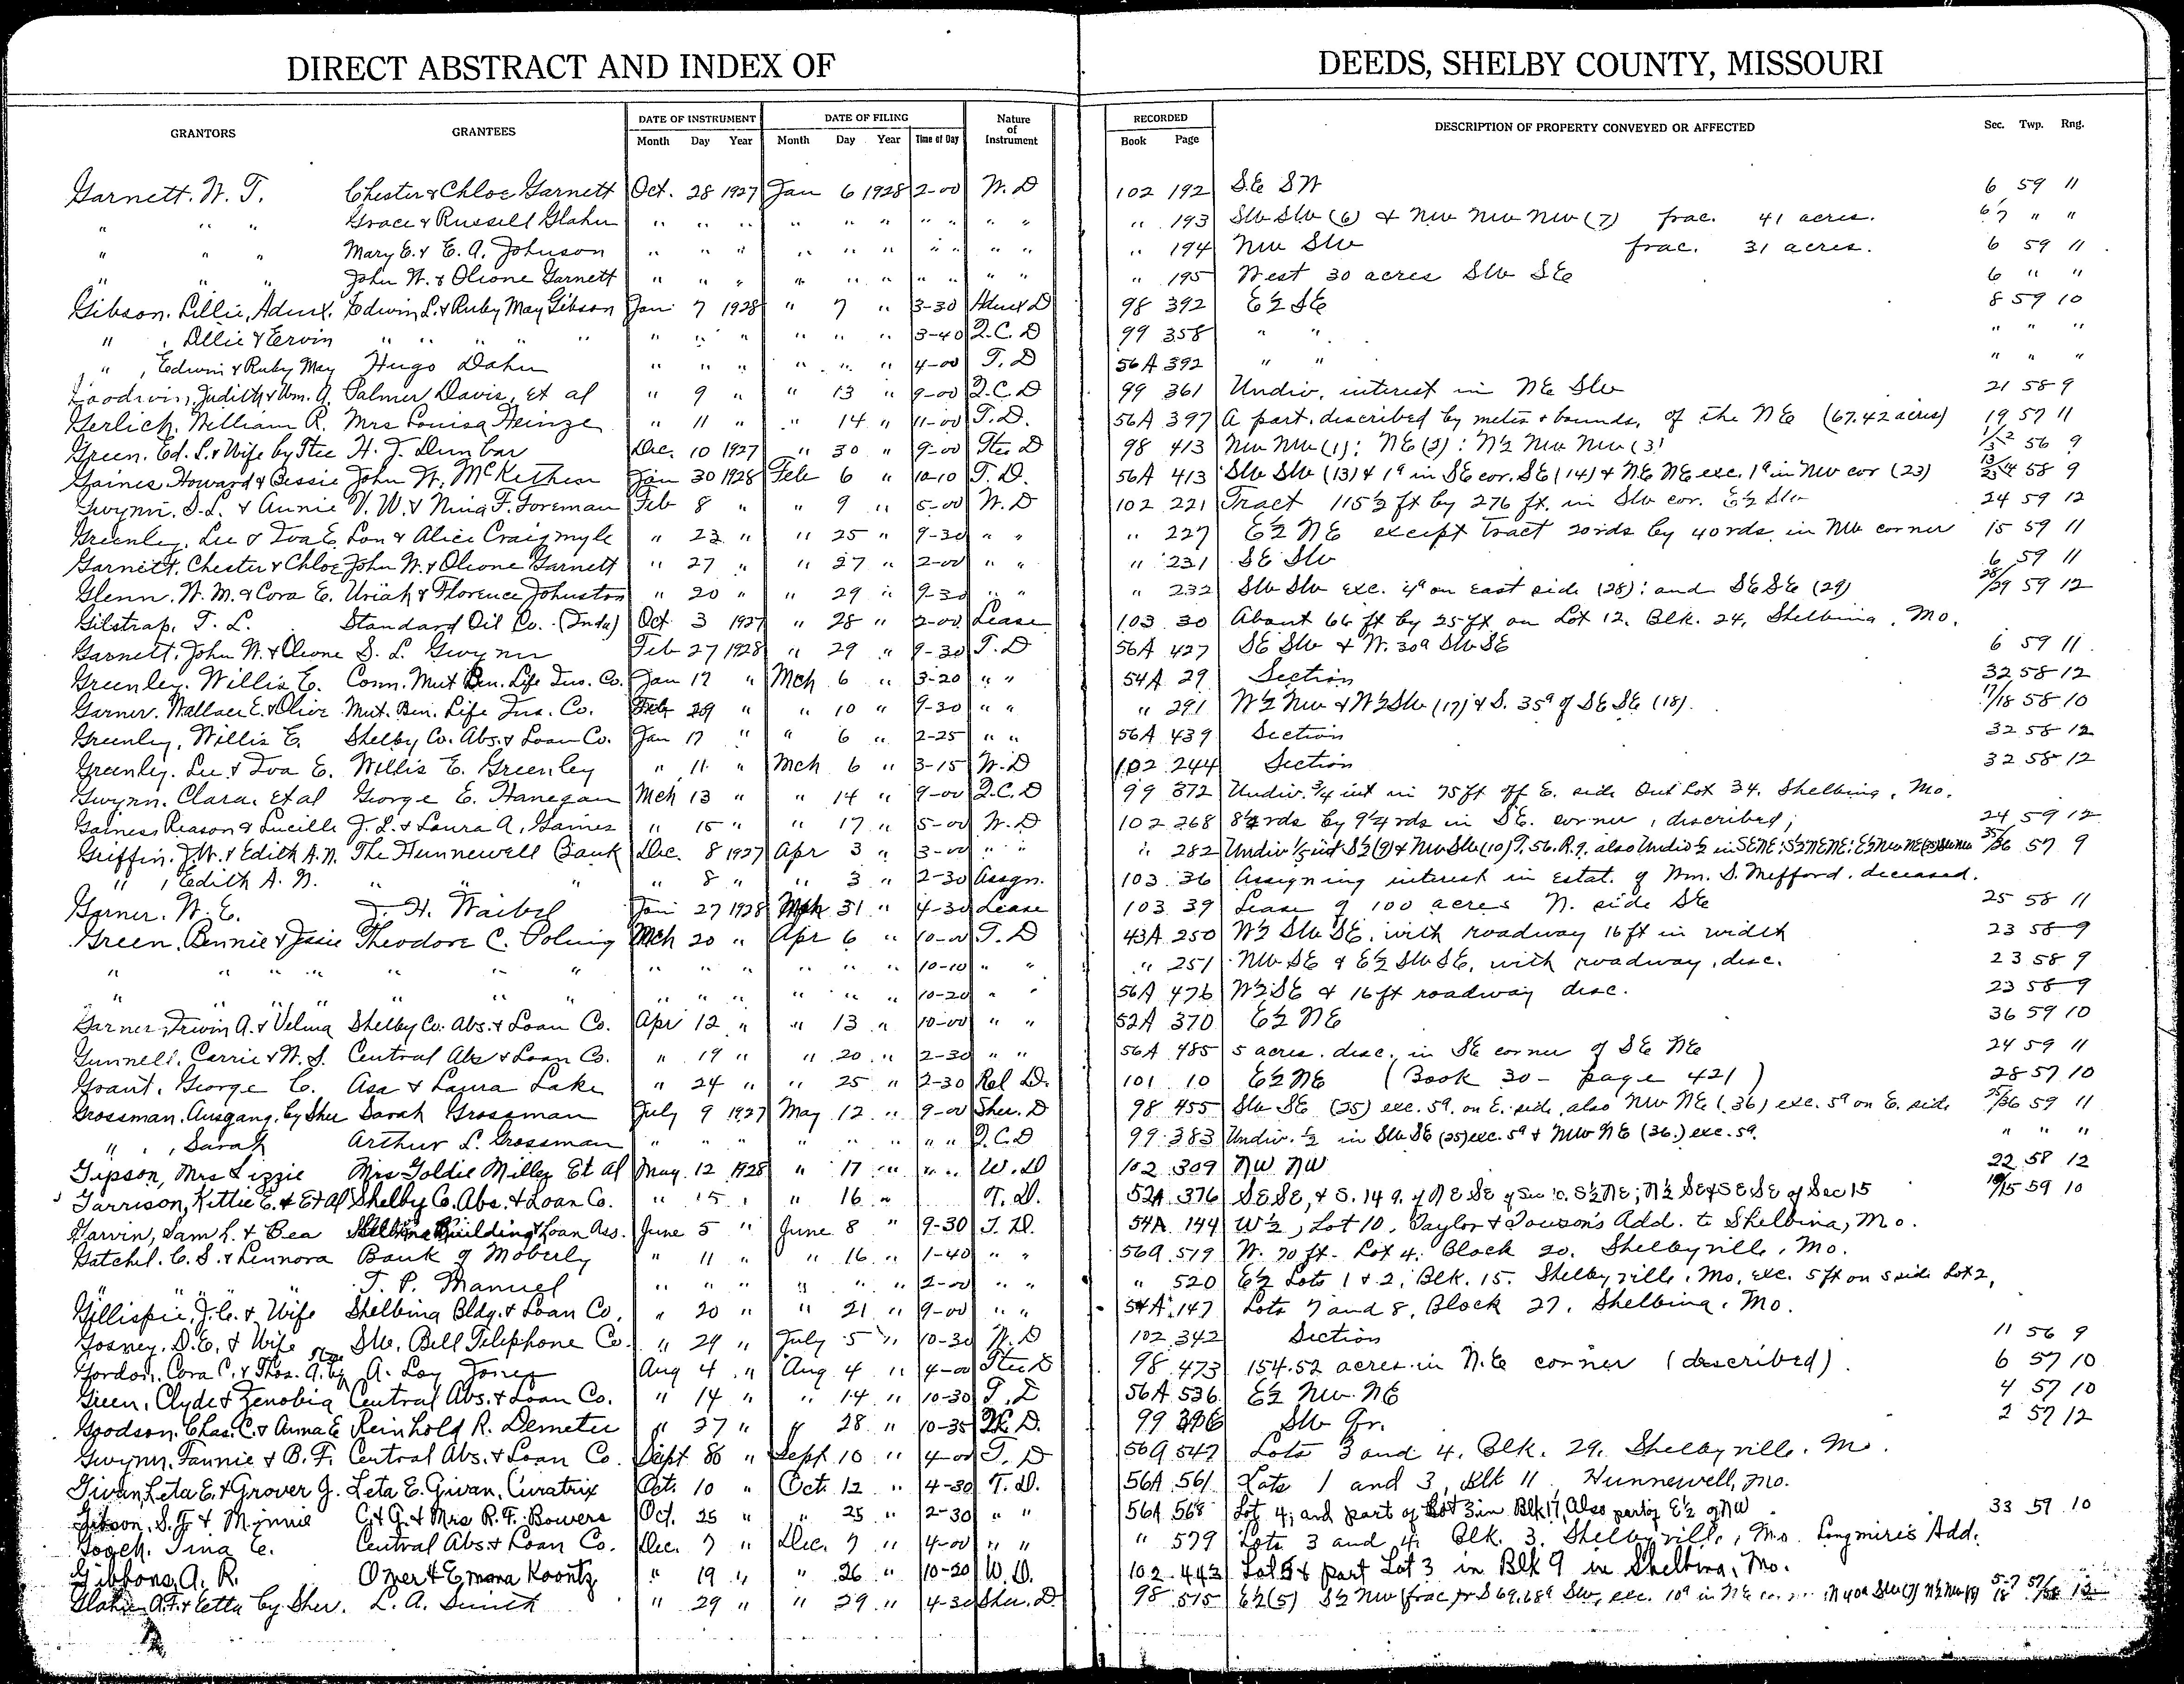 DIRECT ABSTRACT AND INDEX OF DEEDS, SHELBY COUNTY, MISSOURI
GRANTORS GRANTEES DATE OF INSTRUMENT DATE OF FILING Nature of Instrument RECORDED DESCRIPTION OF PROPERTY CONVEYED OR AFFECTED Sec. Twp. Rng.
Month Day Year Month Day Year Time of Day Book Page
Garnett. W. T. Chester & Chloe Garnett Oct. 28 1927 Jan 6 1928 2-00 W. D 102 192 S.E SW 6 59 11
" " " Grace & Russell Glahn " " " " " " " " " " " 193 SW SW (6) & NW NW NW (7) frac. 41 acres. 6/7 " "
" " " Mary E. & E. A. Johnson " " " " " " " " " " " 194 NW SW frac. 31 acres. 6 59 11
" " " John W. & Oleone Garnett " " " " " " " " " " " 195 West 30 acres SW SE 6 " "
Gibson. Lillie, Admx. Edwin L. & Ruby May Gibson Jan 7 1928 " 7 " 3-30 Admx D 98 392 E½ SE 8 59 10
" , Ollie & Ervin " " " " " " " " " " 3-40 Q.C. D 99 358 " " " " "
" , Edwin & Ruby May Hugo Dahn " " " " " " 4-00 T. D 56A 392 " " " " "
Goodwin, Judith & Wm. A. Palmer Davis, et al " 9 " " 13 " 9-00 Q.C. D 99 361 Undiv. interest in NE SW 21 58 9
Gerlich. William R. Mrs Louisa Heinze " 11 " " 14 " 11-00 T. D. 56A 397 A part. described by metes & bounds, of the NE (67.42 acres) 19 57 11
Green. Ed. L. & Wife by Stee H. J. Dunbar Dec. 10 1927 " 30 " 9-00 Stee D 98 413 NW NW (1): NE (2): N½ NW NW (3) 1/3 2 56 9
Gaines Howard & Bessie John W. McKethen Jan 30 1928 Feb 6 " 10-10 T. D. 56A 413 SW SW (13) & 1ª in SE cor. SE (14) & NE NE exc. 1ª in NW cor (23) 13/23 14 58 9
Gwynn. S.L. & Annie V. W. & Nina F. Foreman Feb 8 " " 9 " 5-00 W. D 102 221 Tract 115½ ft by 276 ft. in SW cor. E½ SW 24 59 12
Greenley. Lee & Iva E. Lon & Alice Craigmyle " 23 " " 25 " 9-30 " " " 227 E½ NE except tract 20rds by 40rds. in NW corner 15 59 11
Garnett. Chester & Chloe John W. & Oleone Garnett " 27 " " 27 " 2-00 " " " 231 SE SW 6 59 11
Glenn. W. M. & Cora E. Uriah & Florence Johnston " 20 " " 29 " 9-30 " " " 232 SW SW exc. 4ª on east side (28): and SE SE (29) 28/29 59 12
Gilstrap. T. L. Standard Oil Co. (Inda) Oct 3 1927 " 28 " 2-00 Lease 103 30 About 66 ft by 25 ft on Lot 12. Blk. 24, Shelbina, Mo.
Garnett. John W. & Oleone S. L. Gwynn Feb 27 1928 " 29 " 9-30 T. D 56A 427 SE SW & W. 30ª SW SE 6 59 11
Greenley. Willis E. Conn. Mut Ben. Life Ins. Co. Jan 17 " Mch 6 " 3-20 " " 54A 29 Section 32 58 12
Garner. Wallace E. & Olive Mut. Ben. Life Ins. Co. Feb 29 " " 10 " 9-30 " " " 291 W½ NW & W½ SW (17) & S. 35ª of SE SE (18). 17/18 58 10
Greenley, Willis E. Shelby Co. Abs. & Loan Co. Jan 17 " " 6 " 2-25 " " 56A 439 Section 32 58 12
Greenley. Lee & Iva E. Willis E. Greenley " 11 " Mch 6 " 3-15 W. D 102 244 Section 32 58 12
Gwynn. Clara. Et al George E. Hanegan Mch 13 " " 14 " 9-00 Q.C. D 99 372 Undiv. ¾ int in 75 ft off E. side Out Lot 34, Shelbina, Mo.
Gaines Reason & Lucille J. L. & Laura A, Gaines " 15 " " 17 " 5-00 W. D 102 268 rds by 9¼ rds in SE. corner, described; 24 59 12
Griffin. J.W. & Edith A. N. The Hunnewell Bank Dec. 8 1927 Apr 3 " 3-00 " " " 282 Undiv ⅕ int S½ (9) & NW SW (10) T. 56. R. 9. also Undiv ½ in SE NE; S½ NE NE; E½ NW NE 35/36 57 9
" , Edith A. N. " " " " 8 " " 3 " 2-30 Assgn. 103 36 Assigning interest in Estat. of Wm. S. Mefford. deceased.
Garner. W. E. J. H. Waibel Jan 27 1928 Mch 31 " 4-30 Lease 103 39 Lease of 100 acres N. side SE 25 58 11
Green, Bennie & Jssie Theodore C. Poling Mch 20 " Apr 6 " 10-00 T. D 43A 250 W½ SW SE. with roadway 16 ft in width 23 58 9
" " " " " " " " " " " " " 10-10 " " " 251 NW SE & E½ SW SE, with roadway, desc. 23 58 9
" " " " " " " " " " " " 10-20 " " 56A 476 W½ SE & 16 ft roadway desc. 23 58 9
Garner, Irwin A. & Velma Shelby Co. Abs. & Loan Co. Apr 12 " " 13 " 10-00 " " 52A 370 E½ NE 36 59 10
Gunnell. Carrie & W. S. Central Abs & Loan Co. " 19 " " 20 " 2-30 " " 56A 485 5 acres. desc. in SE corner of SE NE 24 59 11
Grant. George C. Asa & Laura Lake " 24 " " 25 " 2-30 Rel D. 101 10 E½ NE (Book 30 - page 421) 28 57 10
Grossman. Ausgang. by Sher Sarah Grossman July 9 1927 May 12 " 9-00 Sher. D 98 455 SW SE (25) exc. 5ª. on E. side, also NW NE (36) exc. 5ª on E. side 25/36 59 11
" , Sarah Arthur L. Grossman " " " " " " " " Q.C. D 99 383 Undiv. ½ in SW SE (25) exc. 5ª & NW NE (36.) exc. 5ª. " " "
Gipson, Mrs Lizzie Mrs Goldie Milley Et al May 12 1928 " 17 " " " W. D 102 309 NW NW 22 58 12
Garrison, Kittie E. & Et Al Shelby Co. Abs. & Loan Co. " 15 " " 16 " T. D. 52A 376 SE SE, & S. 14 a. of NE SE of Sec 10. S½ NE; N½ SE & SE SE of Sec 15 10/15 59 10
Garvin, Sam L. & Bea Shelbina Building & Loan Ass. June 5 " June 8 " 9-30 T. D. 54A 144 W½, Lot 10, Taylor & Towson's Add. to Shelbina, Mo.
Gatchel. C. S. & Lennora Bank of Moberly " 11 " " 16 " 1-40 " " 56A 519 W. 70 ft. Lot 4. Block 20. Shelbyville, Mo.
" " T. P. Manuel " " " " " " 2-00 " " " 520 E½ Lots 1 & 2, Blk. 15. Shelbyville, Mo. exc. 5 ft on S side Lot 2,
Gillispie, J. C. & Wife Shelbina Bldg. & Loan Co. " 20 " " 21 " 9-00 " " 54A 147 Lots 7 and 8, Block 27, Shelbina, Mo.
Gosney. D.E. & Wife SW. Bell Telephone Co. " 29 " July 5 " 10-30 W. D 102 342 Section 11 56 9
Gordon. Cora C. & Thos. A. by Stee A. Loy Jones Aug 4 " Aug 4 " 4-00 Stee D 98 473 154.52 acres in N.E corner (described). 6 57 10
Green, Clyde & Zenobia Central Abs. & Loan Co. " 14 " " 14 " 10-30 T. D 56A 536 E½ NW NE 4 57 10
Goodson. Chas. C. & Anna E Reinhold R. Demeter " 27 " " 28 " 10-35 D. 99 396 SW Qr. 2 57 12
Gwynn. Fannie & B. F. Central Abs. & Loan Co. Sept " Sept 10 " 4-00 T. D 56A 547 Lots 3 and 4. Blk. 29. Shelbyville. Mo.
Givan, Leta E. & Grover J. Leta E. Givan, Curatrix Oct. 10 " Oct. 12 " 4-30 T. D. 56A 561 Lots 1 and 3, Blk 11, Hunnewell, Mo.
Gibson, S. J. & Minnie C. & G. & Mrs R. F. Bowers Oct. 25 " " 25 " 2-30 " " 56A 568 Lot 4; and part of Lot 3 in Blk 17, Also part of E½ of NW 33 57 10
Gooch. Tina C. Central Abs & Loan Co. Dec. 7 " Dec. 7 " 4-00 " " " 579 Lots 3 and 4. Blk. 3. Shelbyville, Mo. Longmire's Add.
Gibbons, A. R. Omer & Emma Koontz " 19 " " 26 " 10-20 W. D. 102 443 Lot & part Lot 3 in Blk 9 in Shelbina, Mo.
Glahn A.F. & Etta by Sher. L. A. Smith " 29 " " 29 " 4-30 Sher. D. 98 515 E½ (5) S½ NW (frac) & S 69.68ª SW, exc. 10ª in NE